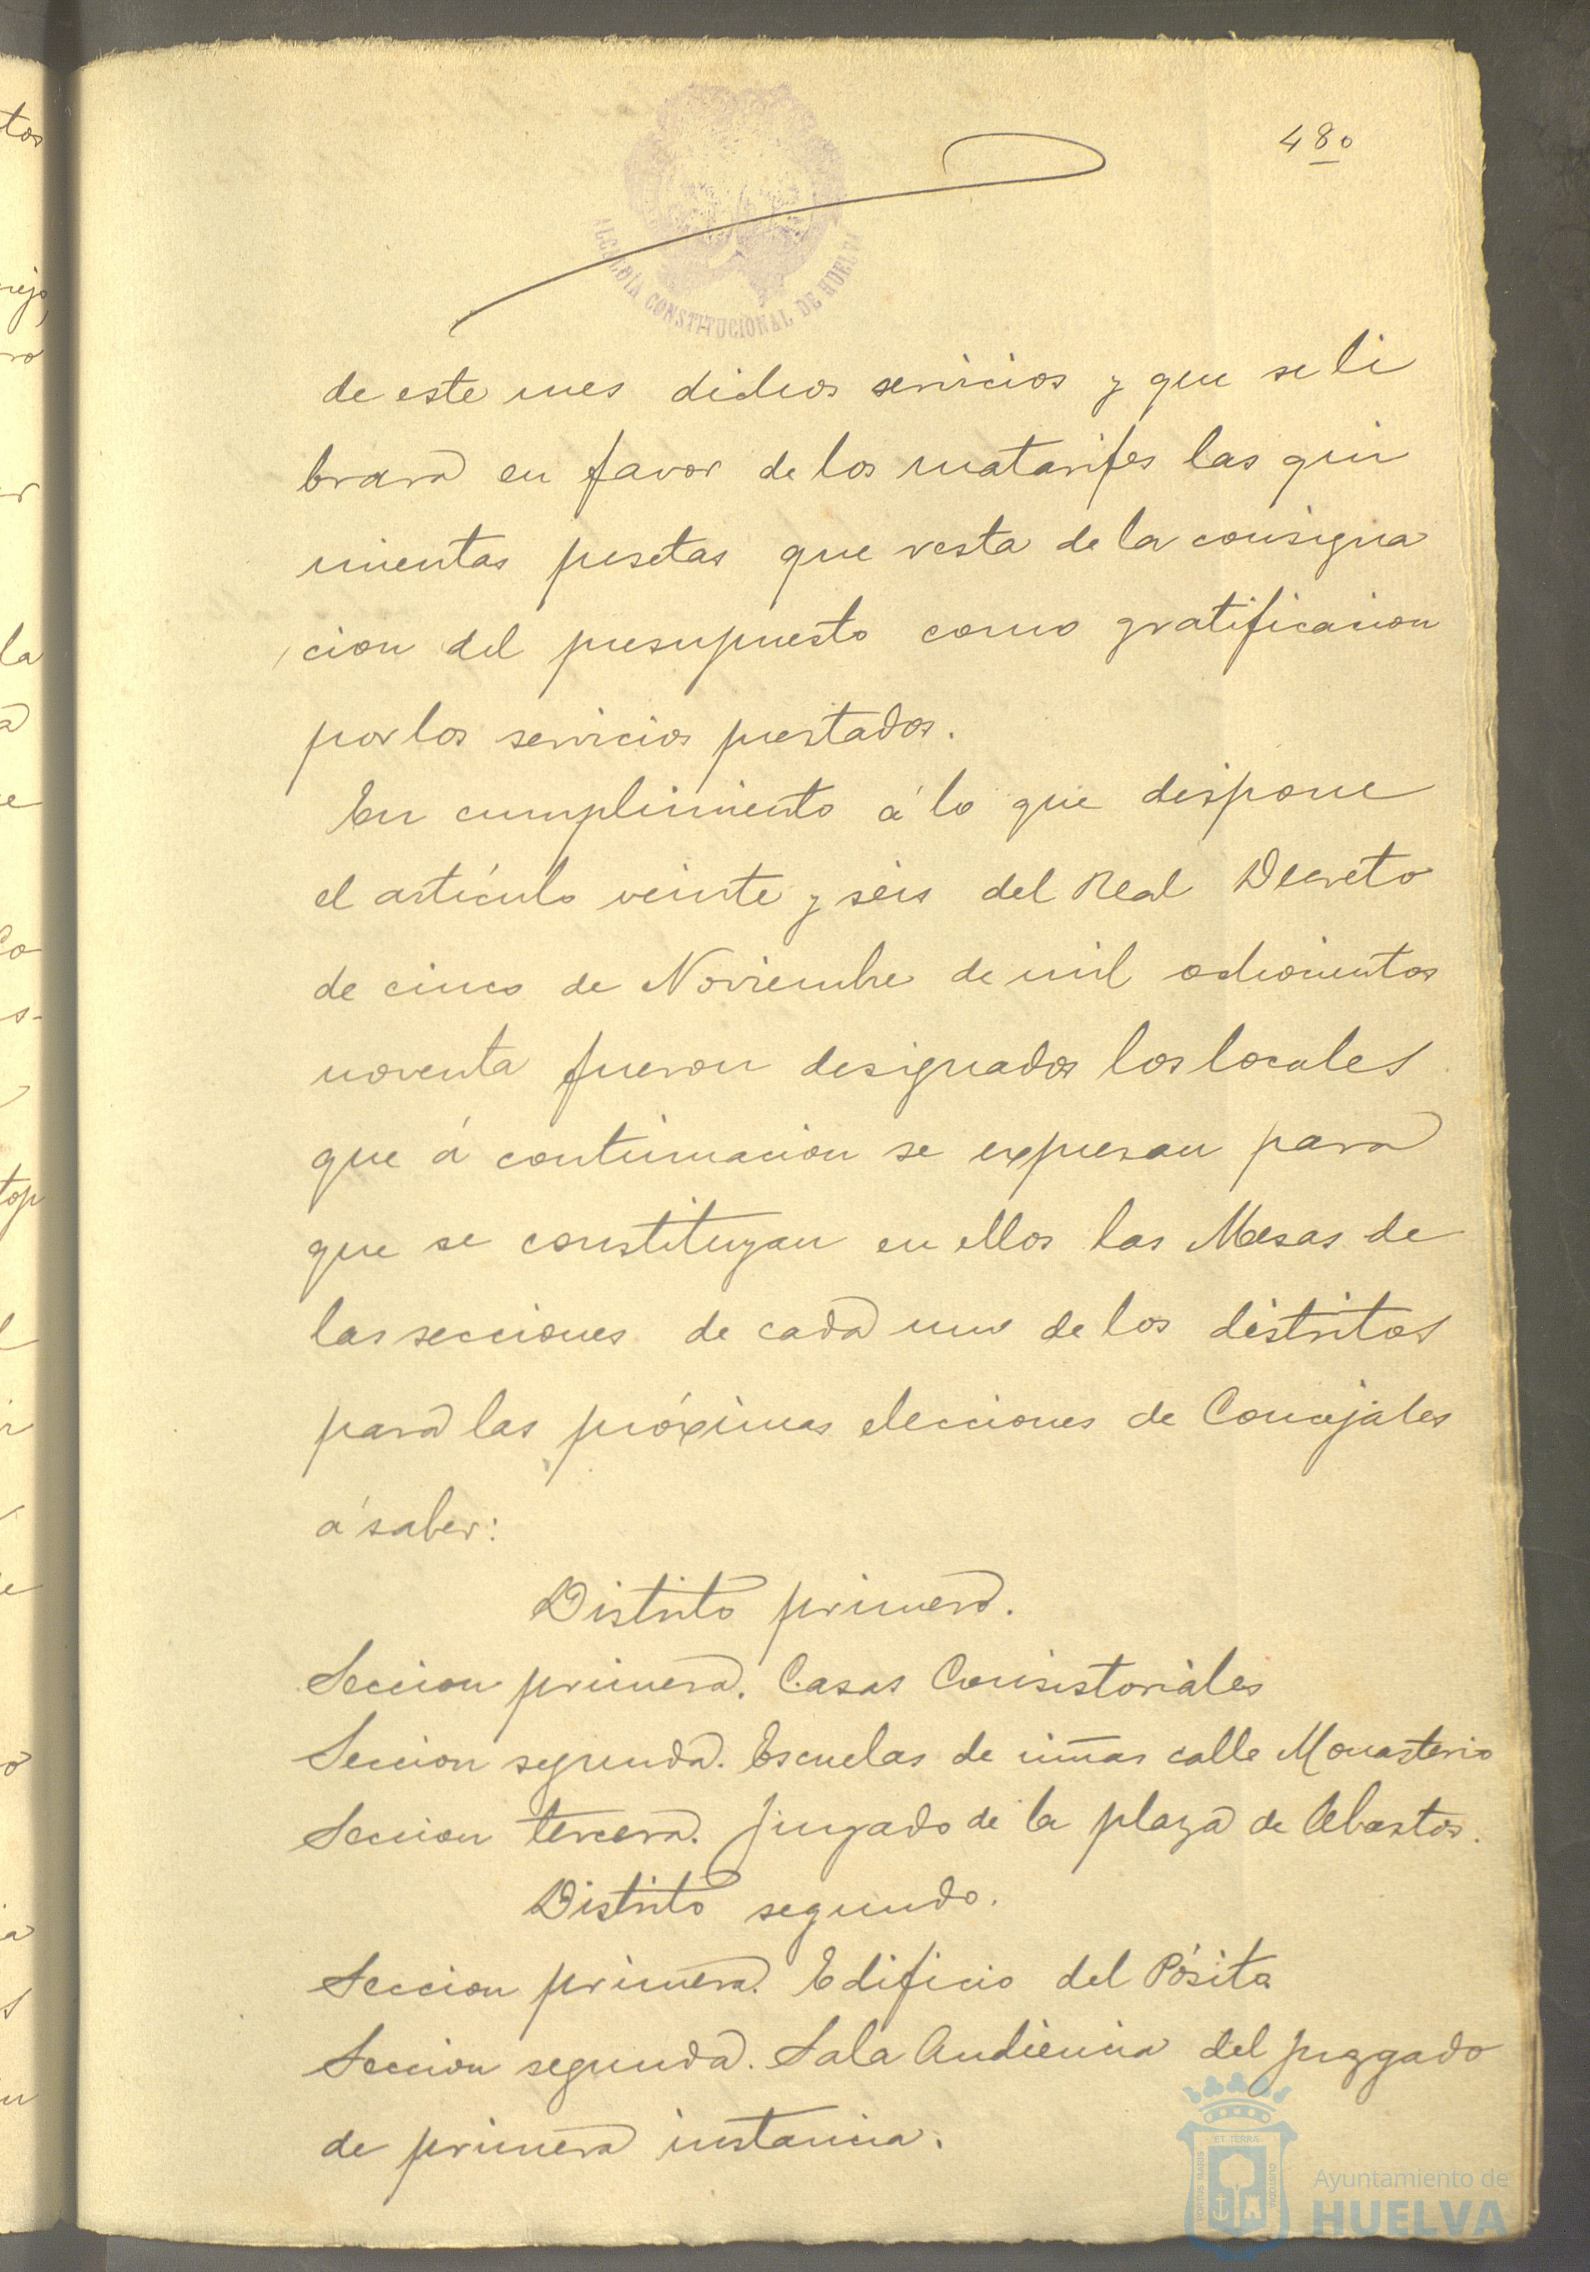 48º
ALCALDÍA CONSTITUCIONAL DE HUELVA
de este mes dichos servicios y que se li
brara en favor de los matarifes las qui
nientas pesetas que resta de la consigna
cion del presupuesto como gratificacion
por los servicios prestados.
En cumplimiento á lo que dispone
el artículo veinte y seis del Real Decreto
de cinco de Noviembre de mil ochocientos
noventa fueron designados los locales
que á continuacion se expresan para
que se constituyan en ellos las Mesas de
las secciones de cada uno de los distritos
para las próximas elecciones de Concejales
á saber:
Distrito primero.
Seccion primera. Casas Consistoriales
Seccion segunda. Escuelas de niñas calle Monasterio
Seccion tercera. Juzgado de la plaza de Abastos.
Distrito segundo.
Seccion primera. Edificio del Pósito
Seccion segunda. Sala Audiencia del juzgado
de primera instancia.
PORTUS MARIS ET TERRÆ CUSTODIA
Ayuntamiento de
HUELVA